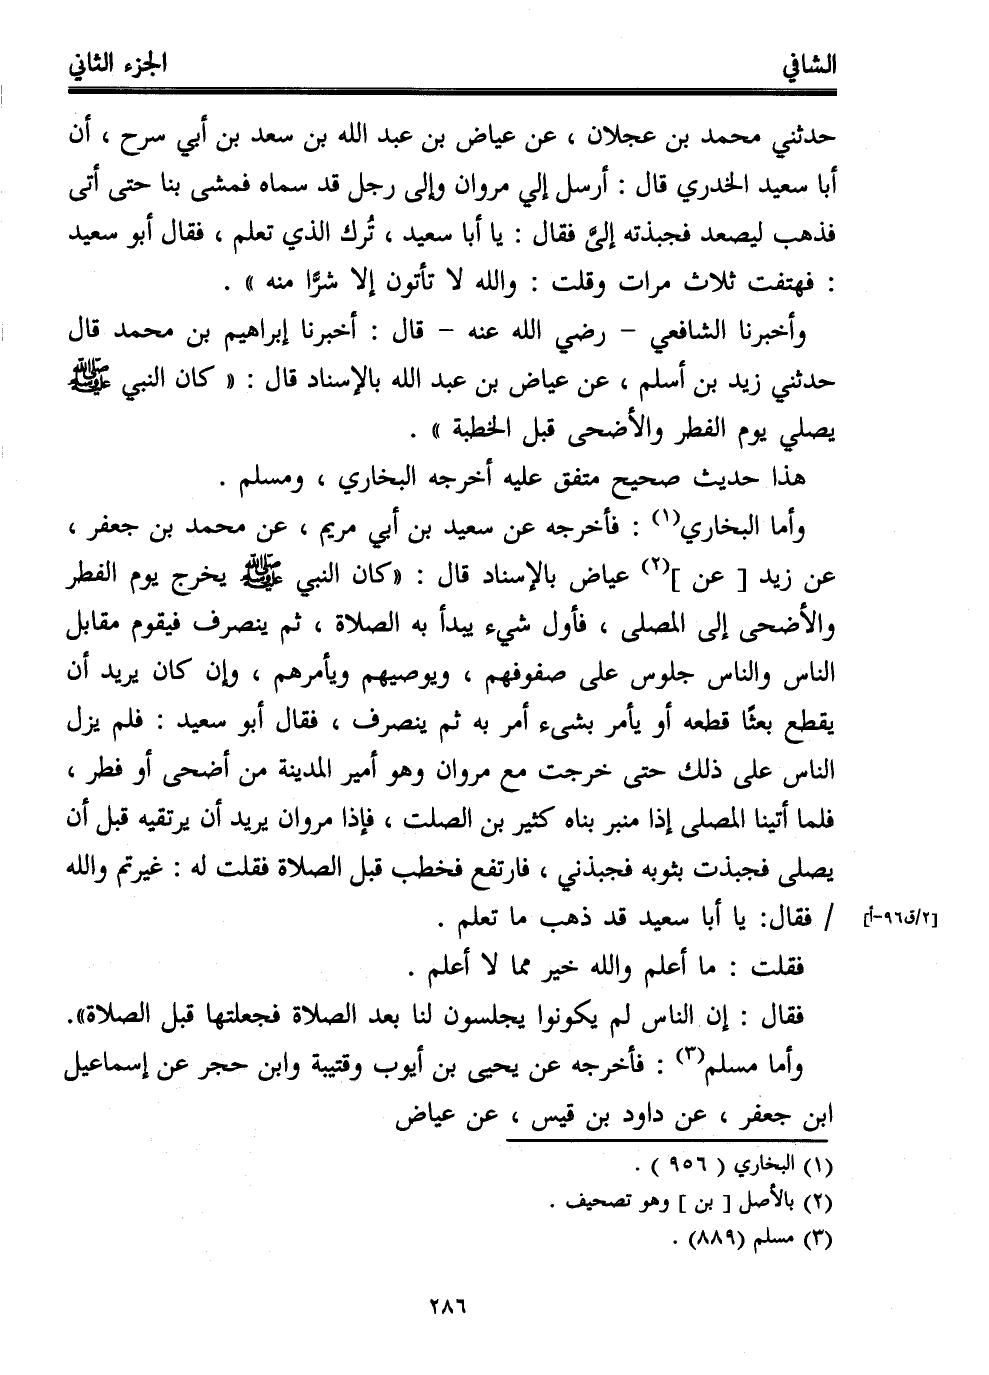 الشافي
الجزء الثاني
حدثني محمد بن عجلان ، عن عياض بن عبد الله بن سعد بن أبي سرح ، أن
أبا سعيد الخدري قال : أرسل إلي مروان وإلى رجل قد سماه فمشى بنا حتى أتى
فذهب ليصعد فجبذته إليَّ فقال : يا أبا سعيد ، تُرك الذي تعلم ، فقال أبو سعيد
: فهتفت ثلاث مرات وقلت : والله لا تأتون إلا شرًّا منه » .
وأخبرنا الشافعي – رضي الله عنه – قال : أخبرنا إبراهيم بن محمد قال
حدثني زيد بن أسلم ، عن عياض بن عبد الله بالإسناد قال : « كان النبي ﷺ
يصلي يوم الفطر والأضحى قبل الخطبة » .
هذا حديث صحيح متفق عليه أخرجه البخاري ، ومسلم .
وأما البخاري(١) : فأخرجه عن سعيد بن أبي مريم ، عن محمد بن جعفر ،
عن زيد [ عن ](٢) عياض بالإسناد قال : «كان النبي ﷺ يخرج يوم الفطر
والأضحى إلى المصلى ، فأول شيء يبدأ به الصلاة ، ثم ينصرف فيقوم مقابل
الناس والناس جلوس على صفوفهم ، ويوصيهم ويأمرهم ، وإن كان يريد أن
يقطع بعثًا قطعه أو يأمر بشيء أمر به ثم ينصرف ، فقال أبو سعيد : فلم يزل
الناس على ذلك حتى خرجت مع مروان وهو أمير المدينة من أضحى أو فطر ،
فلما أتينا المصلى إذا منبر بناه كثير بن الصلت ، فإذا مروان يريد أن يرتقيه قبل أن
يصلى فجبذت بثوبه فجبذني ، فارتفع فخطب قبل الصلاة فقلت له : غيرتم والله
/ فقال: يا أبا سعيد قد ذهب ما تعلم .
[٢/ق٩٦-أ]
فقلت : ما أعلم والله خير مما لا أعلم .
فقال : إن الناس لم يكونوا يجلسون لنا بعد الصلاة فجعلتها قبل الصلاة».
وأما مسلم(٣) : فأخرجه عن يحيى بن أيوب وقتيبة وابن حجر عن إسماعيل
ابن جعفر ، عن داود بن قيس ، عن عياض
(١) البخاري ( ٩٥٦ ) .
(٢) بالأصل [ بن ] وهو تصحيف .
(٣) مسلم (٨٨٩) .
٢٨٦